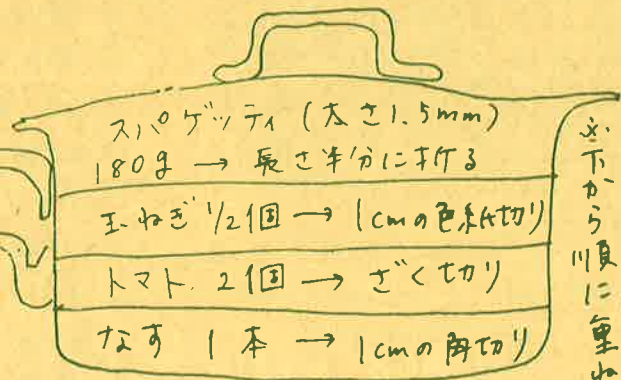 スパゲッティ(太さ1.5mm)
180g → 長さ半分に折る
玉ねぎ 1/2個 → 1cmの色紙切り
トマト 2個 → ざく切り
なす 1本 → 1cmの角切り
※下から順に重ね